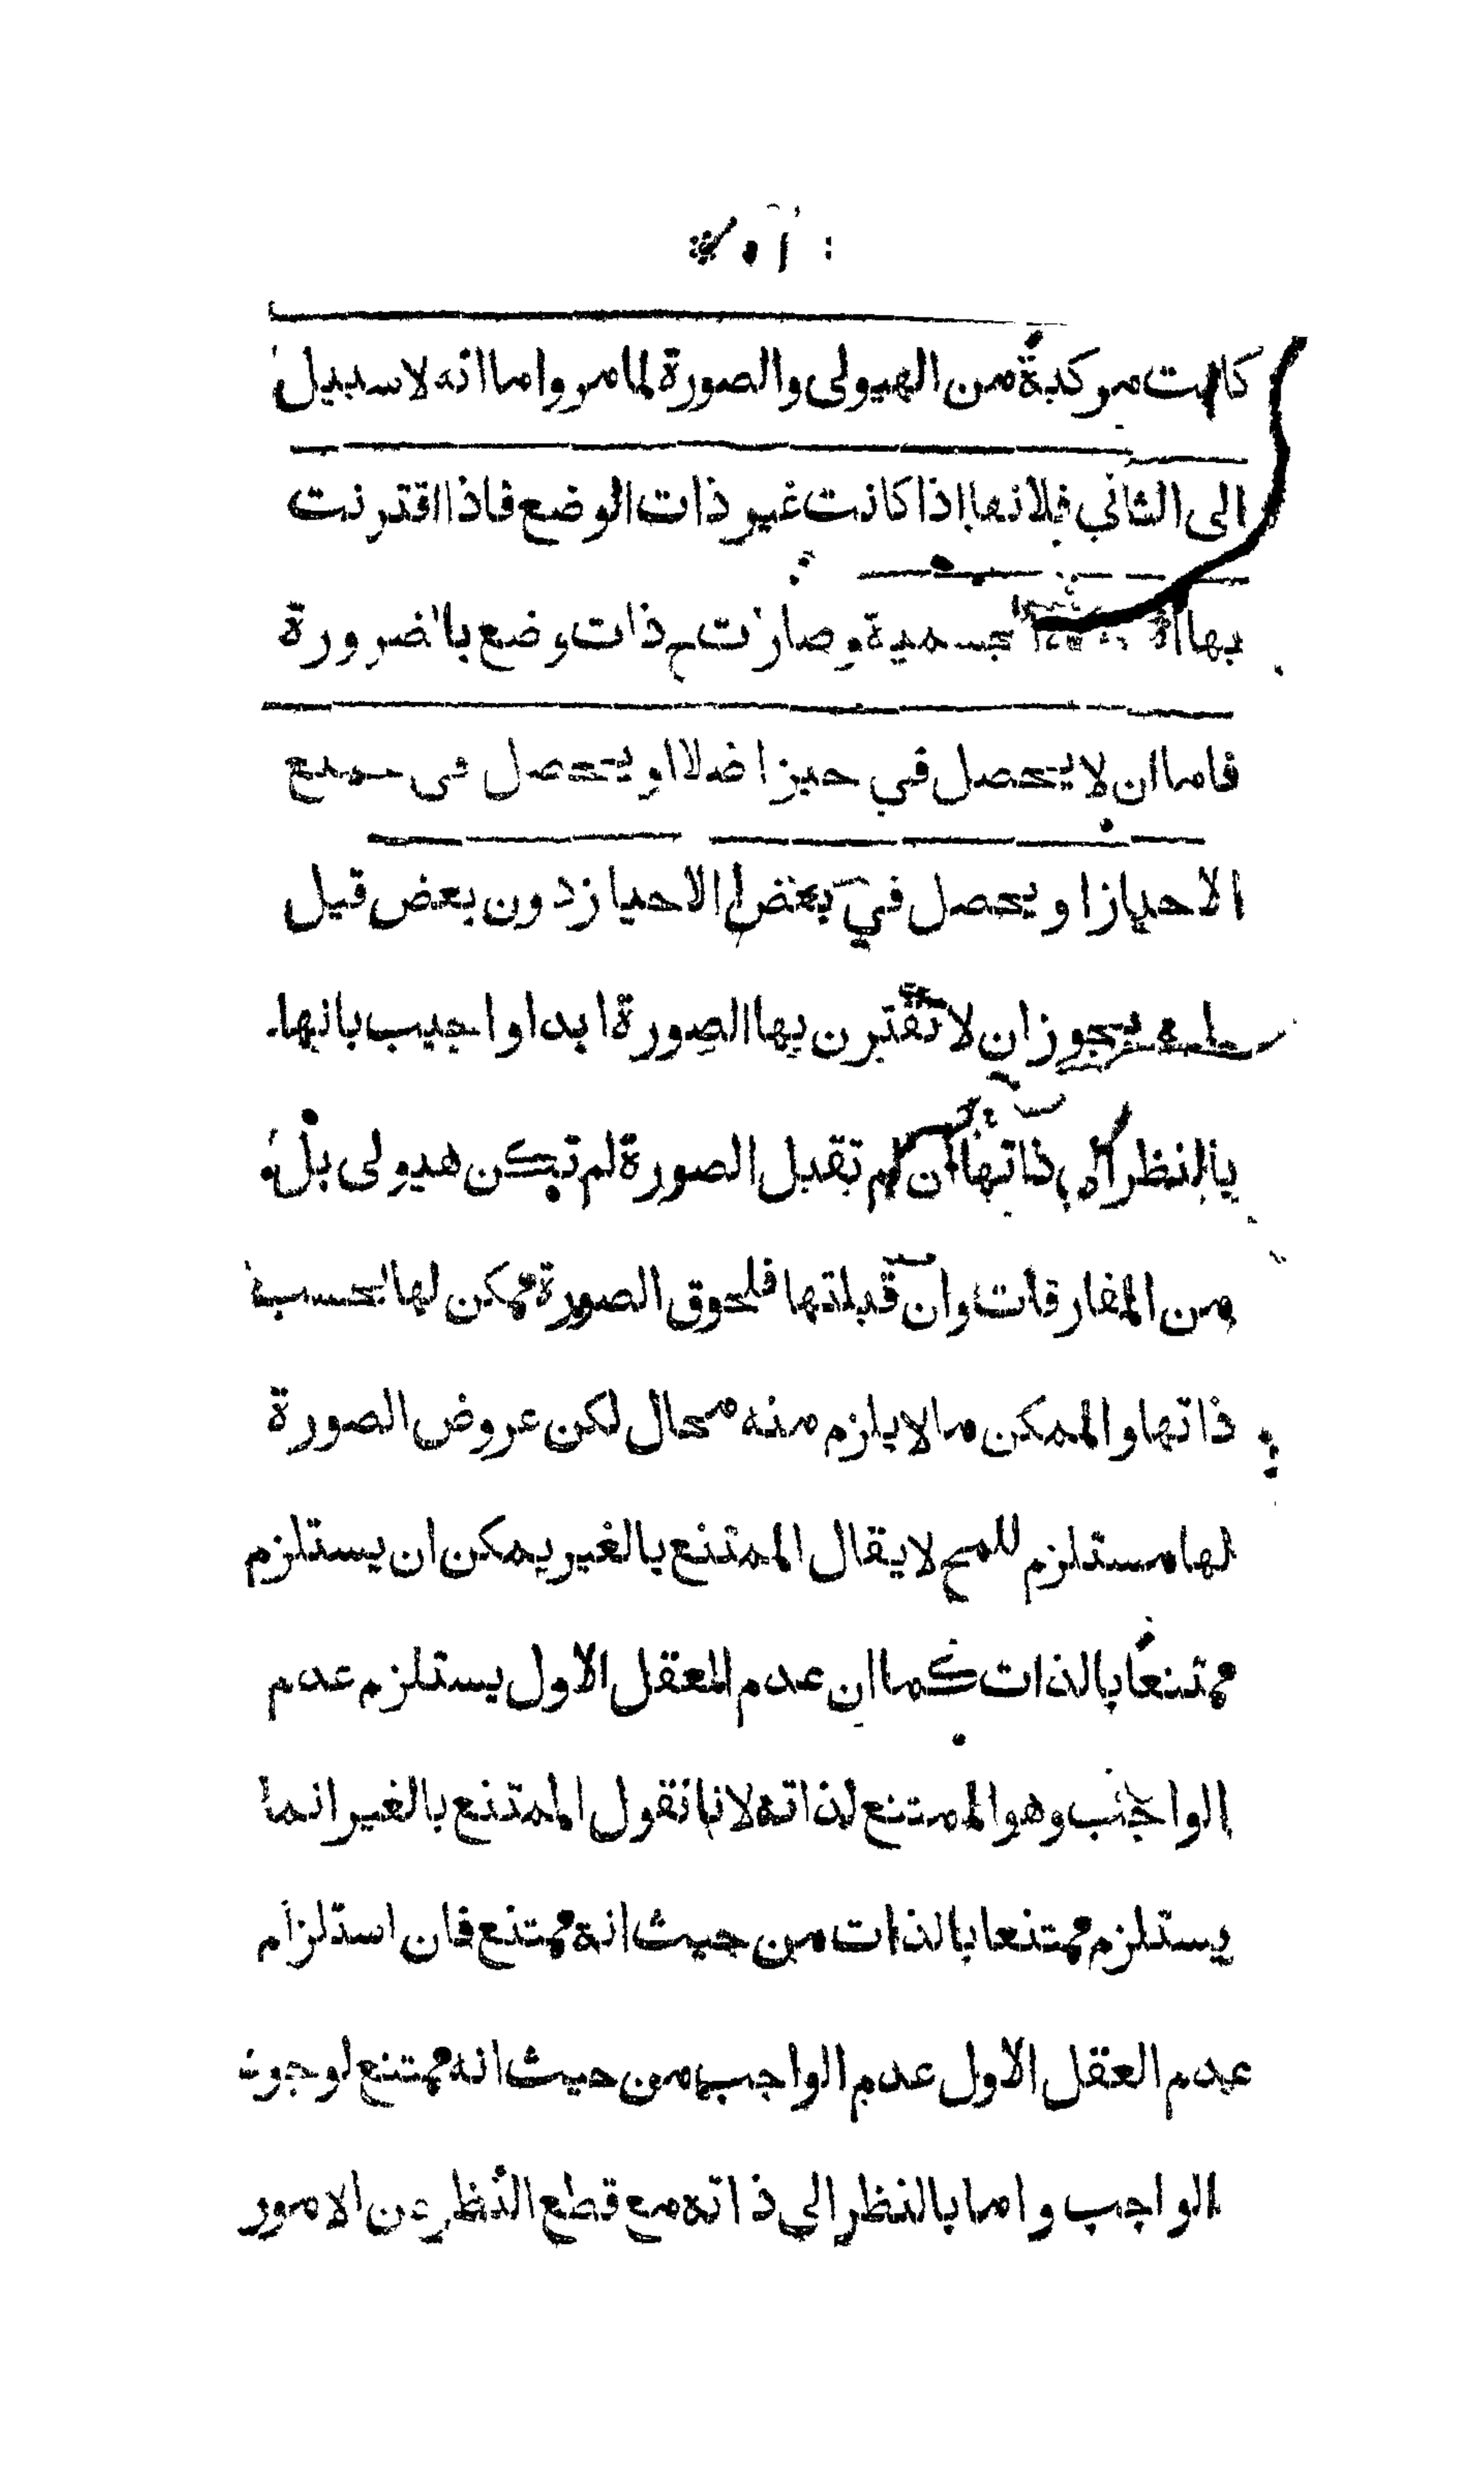 كانت مركبة من الهيولى والصورة لما مر واما انه لا سبيل
الى الثاني فلانها اذا كانت غير ذات الوضع فاذا اقترنت
بها الجسمية وصارت ح ذات وضع بالضرورة
فاما ان لا يحصل في حيز اصلا او يحصل في جميع
الاحياز او يحصل في بعض الاحياز دون بعض قيل
يجوز ان لا تقترن بها الصورة ابدا واجيب بانها
بالنظر الى ذاتها ان لم تقبل الصورة لم تكن هيولى بل
من المفارقات وان قبلتها فلحوق الصورة ممكن لها بحسب
ذاتها والممكن ما لا يلزم منه محال لكن عروض الصورة
لها مستلزم للمح لا يقال الممتنع بالغير يمكن ان يستلزم
ممتنعًا بالذات كما ان عدم المعقل الاول يستلزم عدم
الواجب وهو الممتنع لذاته لانا نقول الممتنع بالغير انما
يستلزم ممتنعا بالذات من حيث انه ممتنع فان استلزام
عدم العقل الاول عدم الواجب من حيث انه ممتنع لوجود
الواجب واما بالنظر الى ذاته مع قطع النظر عن الامور